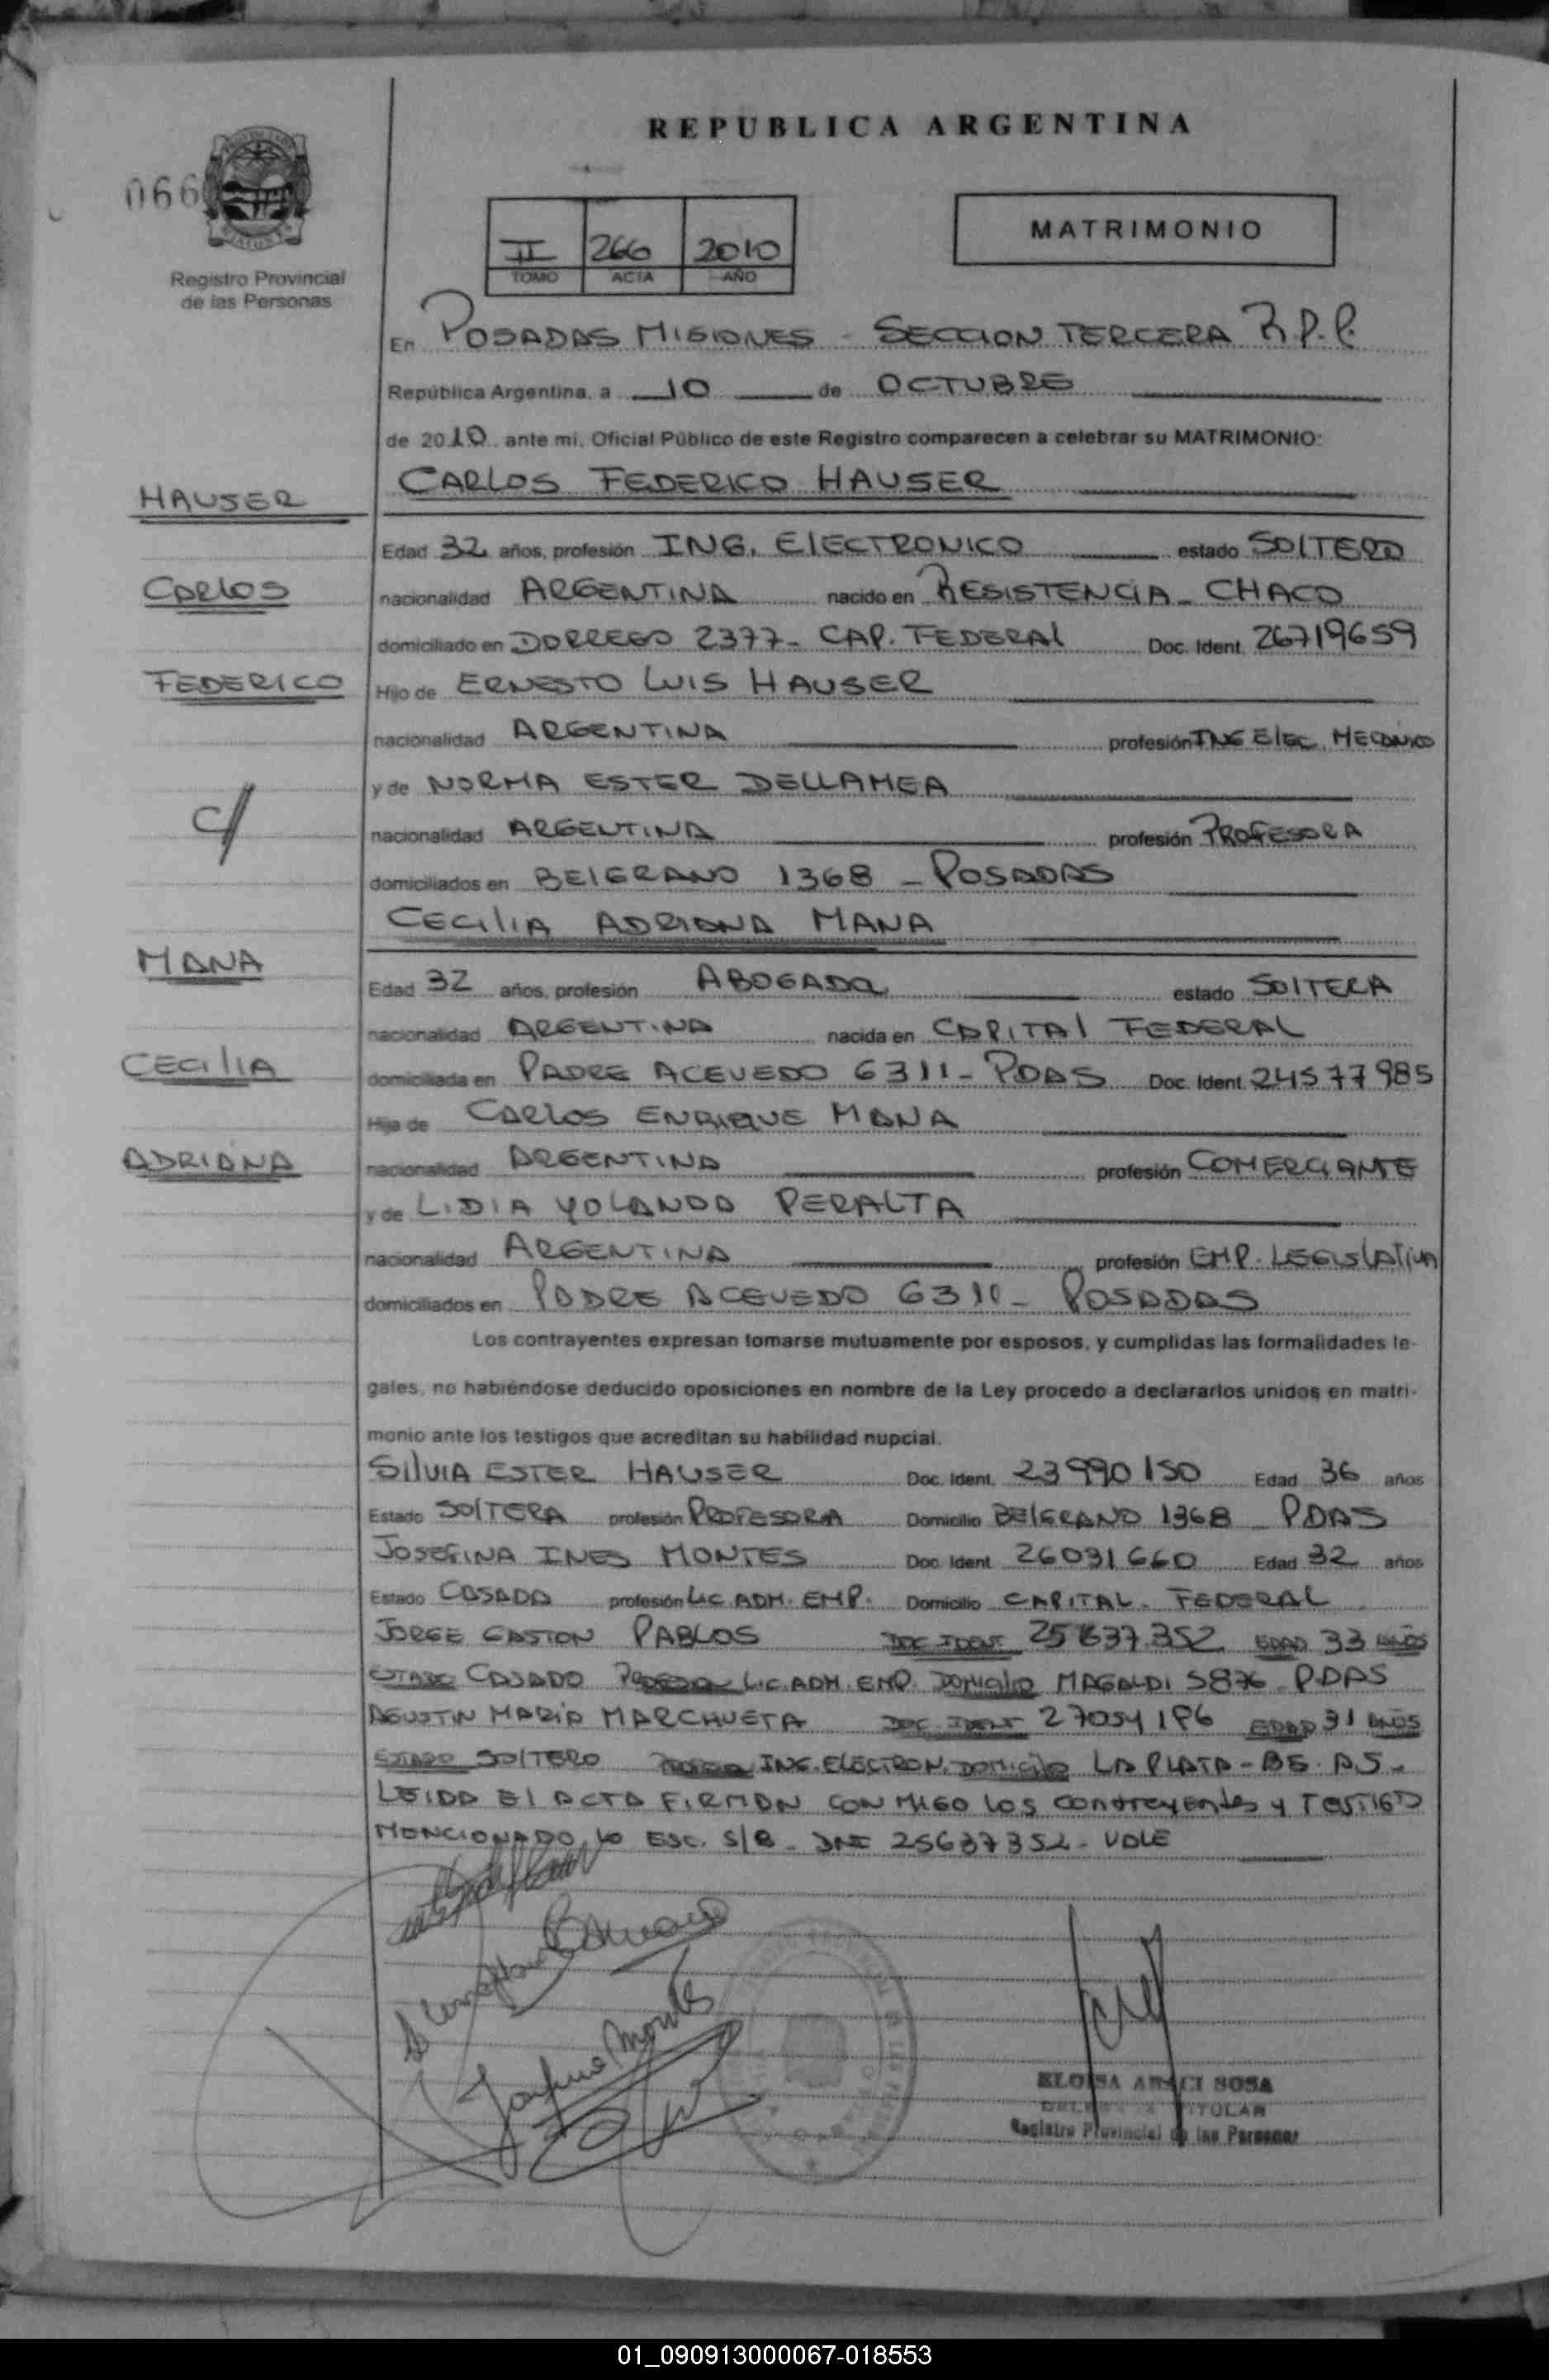 REPUBLICA ARGENTINA
066
Registro Provincial
de las Personas
II 266 2010
TOMO ACTA AÑO
MATRIMONIO
En POSADAS MISIONES - SECCION TERCERA R.P.P.
República Argentina, a 10 de OCTUBRE
de 2010 ante mi, Oficial Público de este Registro comparecen a celebrar su MATRIMONIO:
CARLOS FEDERICO HAUSER
HAUSER
Edad 32 años, profesión ING. ELECTRONICO estado SOLTERO
CARLOS
nacionalidad ARGENTINA nacido en RESISTENCIA - CHACO
domiciliado en DORREGO 2377 - CAP. FEDERAL Doc. Ident. 26719659
FEDERICO
Hijo de ERNESTO LUIS HAUSER
nacionalidad ARGENTINA profesión ING ELEC. MECANICO
y de NORMA ESTER DELLAMEA
c/
nacionalidad ARGENTINA profesión PROFESORA
domiciliados en BELGRANO 1368 - POSADAS
CECILIA ADRIANA MANA
MANA
Edad 32 años, profesión ABOGADA estado SOLTERA
nacionalidad ARGENTINA nacida en CAPITAL FEDERAL
CECILIA
domiciliada en PADRE ACEVEDO 6311 - PDAS Doc. Ident. 24577985
Hija de CARLOS ENRIQUE MANA
ADRIANA
nacionalidad ARGENTINA profesión COMERCIANTE
y de LIDIA YOLANDA PERALTA
nacionalidad ARGENTINA profesión EMP. LEGISLATIVA
domiciliados en PADRE ACEVEDO 6311 - POSADAS
Los contrayentes expresan tomarse mutuamente por esposos, y cumplidas las formalidades le-
gales, no habiéndose deducido oposiciones en nombre de la Ley procedo a declararlos unidos en matri-
monio ante los testigos que acreditan su habilidad nupcial.
SILVIA ESTER HAUSER Doc. Ident. 23990150 Edad 36 años
Estado SOLTERA profesión PROFESORA Domicilio BELGRANO 1368 - PDAS
JOSEFINA INES MONTES Doc. Ident. 26031660 Edad 32 años
Estado CASADA profesión LIC. ADM. EMP. Domicilio CAPITAL. FEDERAL
JORGE GASTON PABLOS DOC IDENT 25637352 EDAD 33 AÑOS
ESTADO CASADO LIC. ADM. EMP. DOMICILIO MAGALDI 5876 - PDAS
AGUSTIN MARIA MARCHUETA DOC. IDENT 27054196 EDAD 31 AÑOS
ESTADO SOLTERO ING. ELECTRON. DOMICILIO LA PLATA - BS. AS.
LEIDA EL ACTA FIRMAN CON MIGO LOS CONTRAYENTES Y TESTIGO
MENCIONADO, LO ESC. S/B - DNI 25637352 - VALE
Josefina Montes
ELOISA ARACI SOSA
DELEGADA TITULAR
Registro Provincial de las Personas
01_090913000067-018553